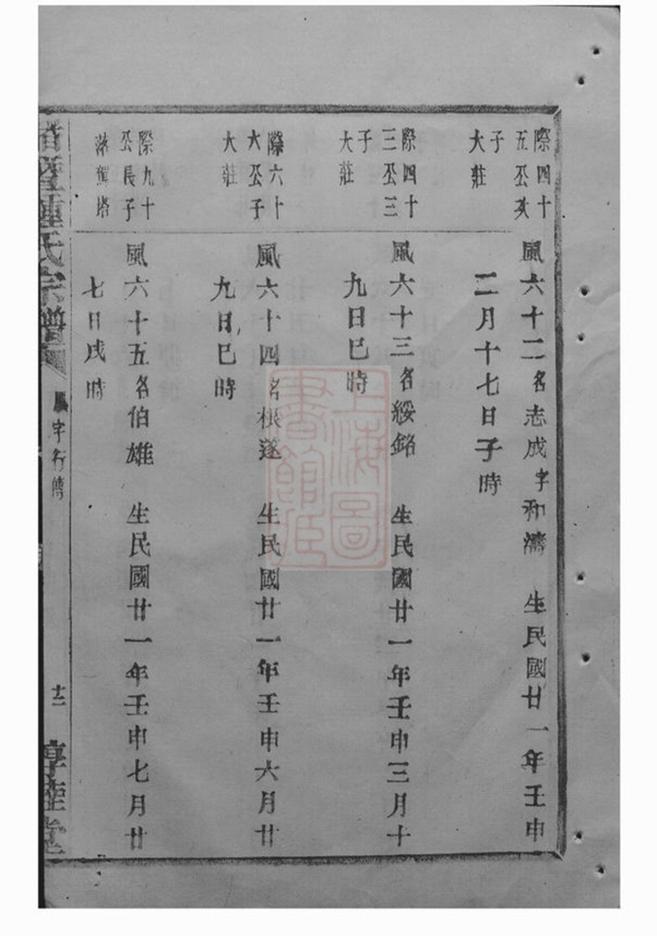 際四十
五公次
子
大莊
風六十二名志成字和濟 生民國廿一年壬申
二月十七日子時
際四十
三公三
子
大莊
風六十三名綏銘 生民國廿一年壬申三月十
九日巳時
際六十
六公子
大莊
風六十四名根遂 生民國廿一年壬申六月廿
九日巳時
際九十
公長子
落駕塔
風六十五名伯雄 生民國廿一年壬申七月廿
七日戌時
氏宗譜
風字行傳
十二
堂
上海圖
書館藏